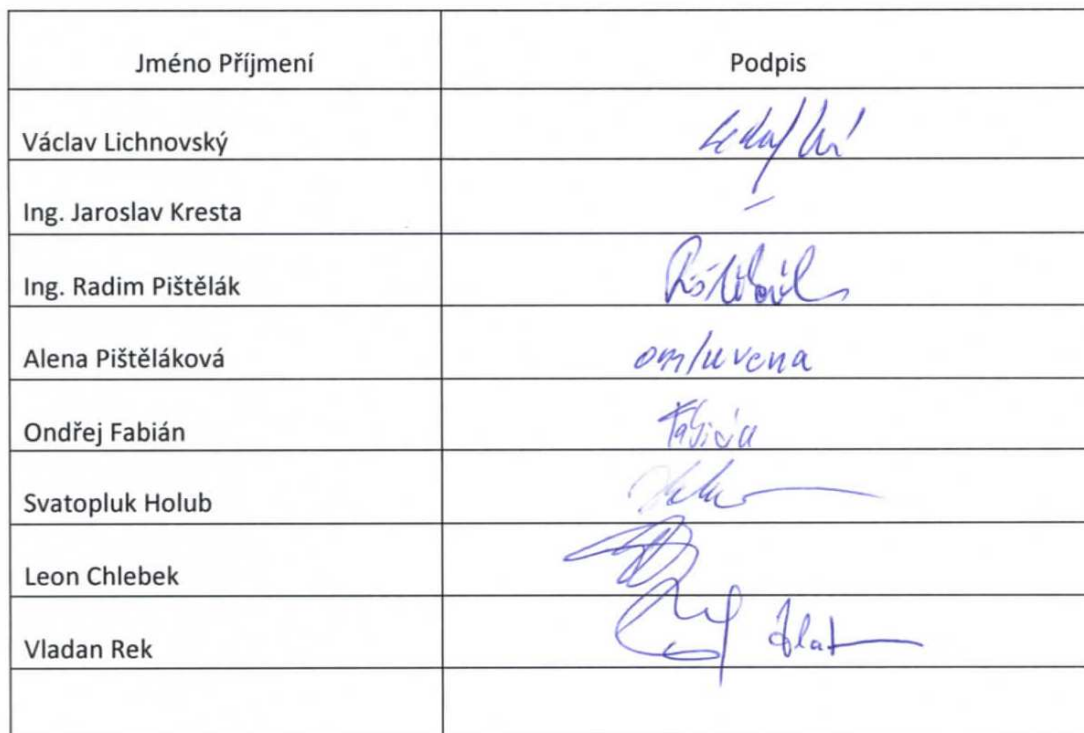 Jméno Příjmení Podpis
Václav Lichnovský
Ing. Jaroslav Kresta
Ing. Radim Pištělák
Alena Pištěláková omluvena
Ondřej Fabián Fabián
Svatopluk Holub
Leon Chlebek
Vladan Rek